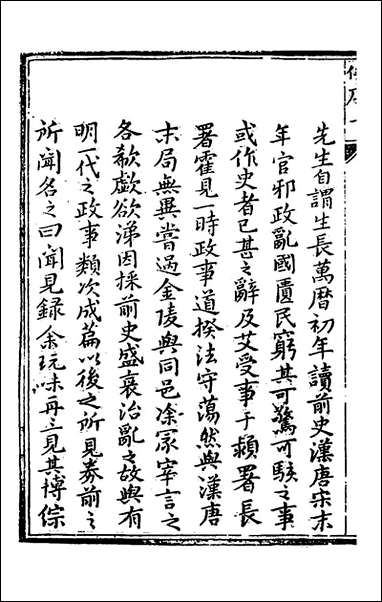 先生自謂生長萬曆初年讀前史漢唐宋末
年官邪政亂國匱民窮其可驚可駭之事
或作史者已甚之辭及艾受事于頼署長
署霍見一時政事道揆法守蕩然與漢唐
末局無異嘗過金陵與同邑凃冢宰言之
各欷歔欲涕因採前史盛衰治亂之故與有
明一代之政事類次成篇以後之所見券前之
所聞名之曰聞見録余玩味再三見其博綜